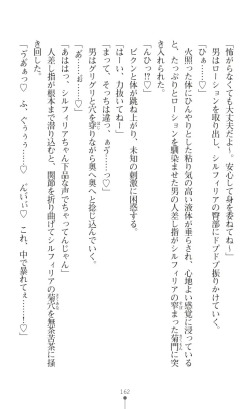 「怖がらなくても大丈夫だよー。安心して身を委ねてね〜」
男はローションを取り出し、シルフィリアの臀部にドプドプ振りかけていく。
「ひぁ……♡」
火照った体にひんやりとした粘り気の高い液体が垂らされ、心地よい感覚に浸っている
と、たっぷりとローションを馴染ませた男の人差し指がシルフィリアの窄まった菊門に突
き入れられた。
「んひっ!?♡」
ビクンと体が跳ね上がり、未知の刺激に困惑する。
「はーい、力抜いてねー」
「まって、そっちは違っ、ぁぅ♡」
男はグリグリと穴を穿りながら奥へ奥へと捻じ込んでいく。
「あ……ぉぉ……♡」
「あははっ。シルフィリアちゃん下品な声でちゃってんじゃん」
人差し指が根本まで潜り込むと、関節を折り曲げてシルフィリアの菊穴を無茶苦茶に掻
き回した。
「うあぁっ♡　ふ、ぐぅぅぅ……♡　んいぃぃ♡　これ、中で暴れてぇ……！♡」
162